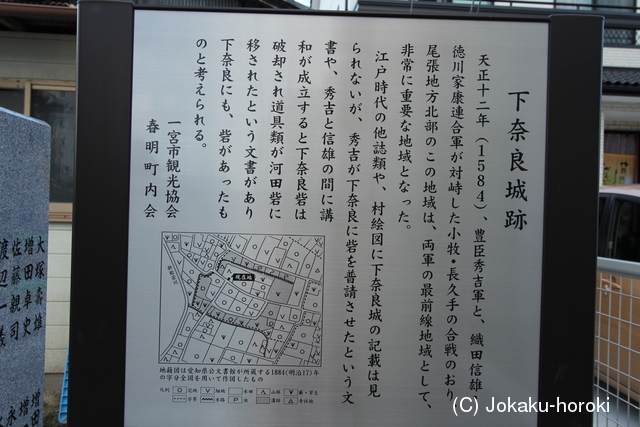 下奈良城跡
天正十二年（1584）、豊臣秀吉軍と、織田信雄、
徳川家康連合軍が対峙した小牧・長久手の合戦のおり、
尾張地方北部のこの地域は、両軍の最前線地域として、
非常に重要な地域となった。
江戸時代の他誌類や、村絵図に下奈良城の記載は見
られないが、秀吉が下奈良に砦を普請させたという文
書や、秀吉と信雄の間に講
和が成立すると下奈良砦は
破却され道具類が河田砦に
移されたという文書があり
下奈良にも、砦があったも
のと考えられる。
一宮市観光協会
春明町内会
現在地
地籍図は愛知県公文書館が所蔵する1884(明治17)年
の字分全図を用いて作図したもの
大塚壽雄
増田卓史
佐藤親司
渡辺一義
(C) Jokaku-horoki